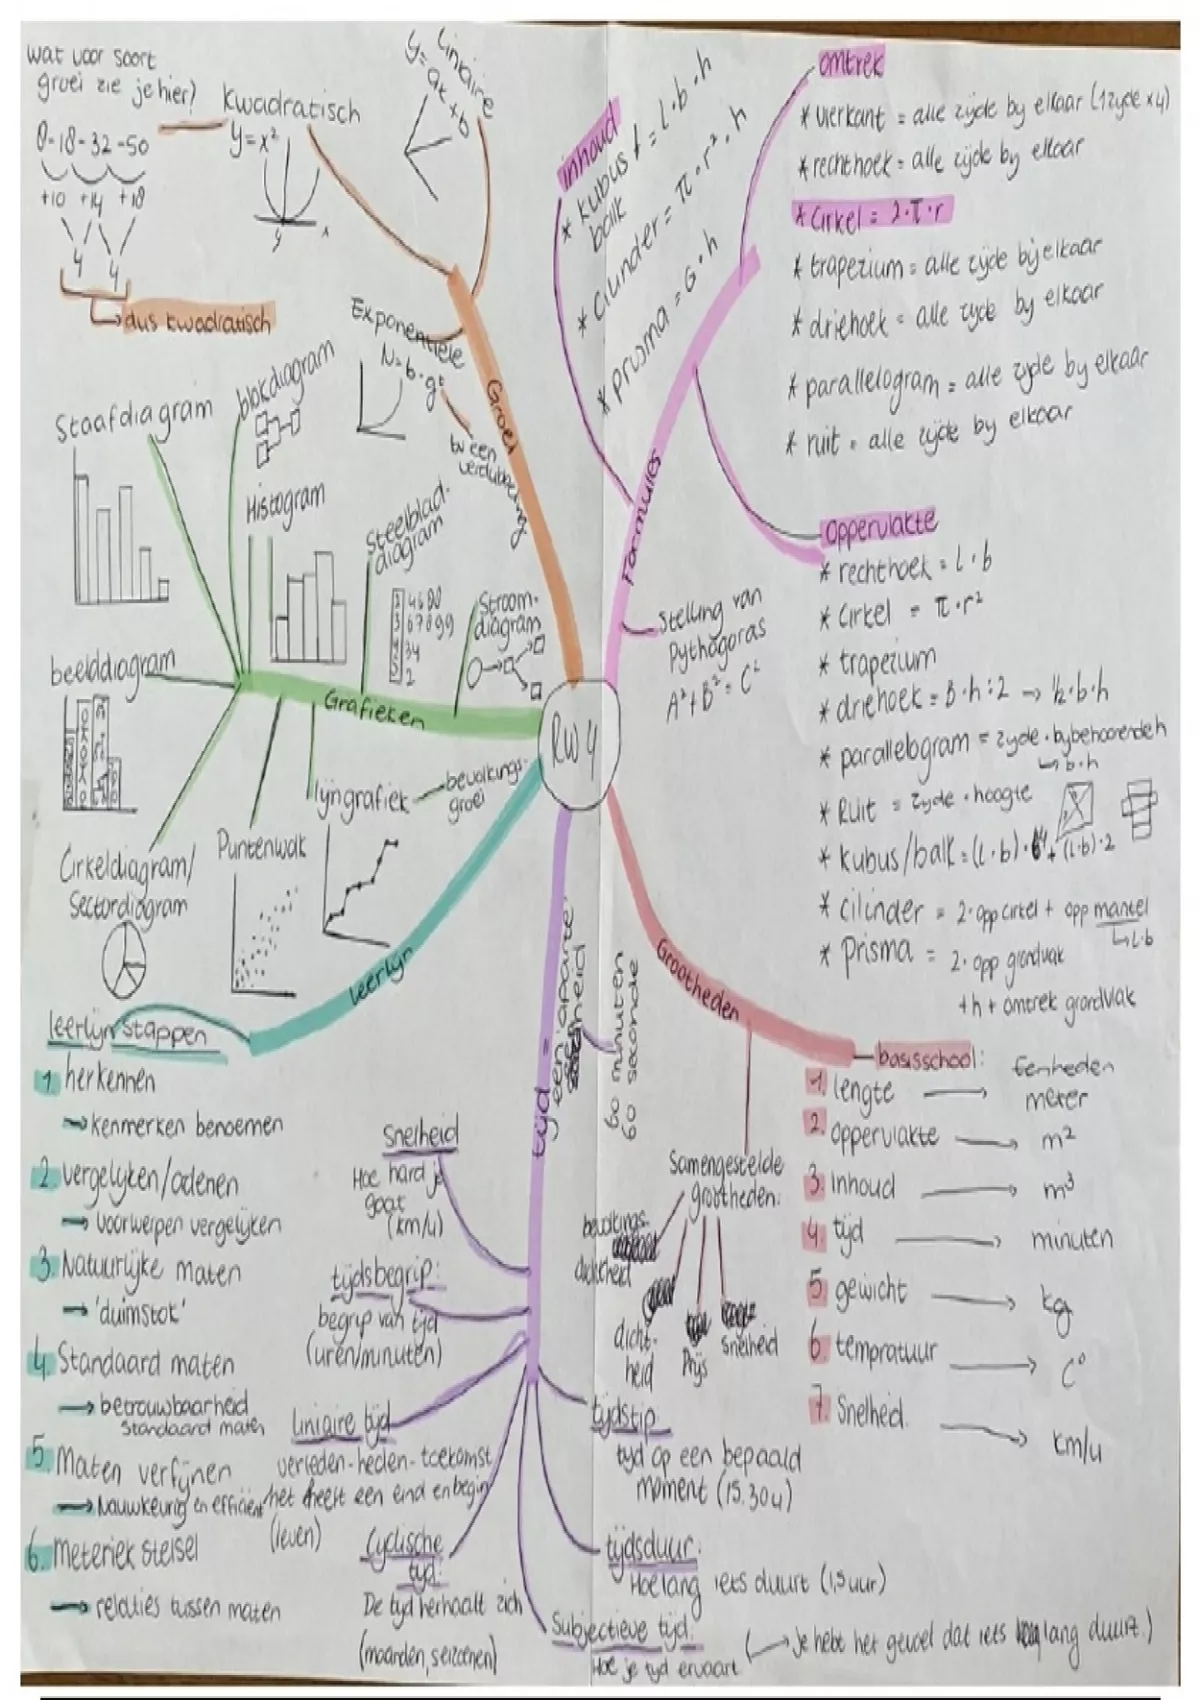 wat voor soort
groei zie je hier?
8-18-32-50
+10 +14 +18
4 4
dus kwadratisch
Kwadratisch
y=x²
y x
Liniaire
y=ax+b
Exponentiële
N=b·gt
bv een
verdubbeling
Groei
Staafdiagram
blokdiagram
Histogram
Steelblad-
diagram
Stroom-
diagram
beelddiagram
Grafieken
lijngrafiek
bevolkings-
groei
Cirkeldiagram/
Sectordiagram
Puntenwolk
RW4
inhoud
* kubus / = l·b·h
balk
* Cilinder = π·r²·h
* prisma = G·h
Formules
omtrek
* vierkant = alle zijde by elkaar (1zijde x4)
* rechthoek = alle zijde by elkaar
* Cirkel = 2·π·r
* trapezium = alle zijde bij elkaar
* driehoek = alle zijde by elkaar
* parallelogram = alle zijde by elkaar
* ruit = alle zijde by elkaar
oppervlakte
* rechthoek = l·b
* Cirkel = π·r²
* trapezium
* driehoek = B·h:2 → ½·b·h
* parallelogram = zijde·bybehoorende h
↳ b·h
* Ruit = zijde·hoogte
* kubus/balk = (l·b)·4 + (l·b)·2
* cilinder = 2·opp cirkel + opp mantel
↳ l·b
* Prisma = 2·opp grondvak
+h + omtrek grondvlak
Stelling van
Pythagoras
A²+B²=C²
leerlijn
leerlijn stappen
1. herkennen
→ kenmerken benoemen
2. vergelyken/ordenen
→ voorwerpen vergelijken
3. Natuurlijke maten
→ 'duimstok'
4. Standaard maten
→ betrouwbaarheid
standaard maten
5. Maten verfijnen
→ Nauwkeurig en efficiënt
6. Meteriek stelsel
→ relaties tussen maten
tijd =
een aparte
60 minuten
60 seconde
Snelheid
Hoe hard je
gaat
(km/u)
tijdsbegrip:
begrip van tijd
(uren/minuten)
liniaire tijd
verleden-heden-toekomst
het heeft een eind en begin
(leven)
Cyclische
tijd:
De tyd herhaalt zich
(maanden, seizoenen)
tijdstip
tyd op een bepaald
moment (15.30u)
tijdsduur:
Hoelang iets duurt (1,5uur)
Subjectieve tijd:
Hoe je tyd ervaart
(→ Je hebt het gevoel dat iets lang duurt.)
Grootheden
Samengestelde
grootheden:
bevolkings-
dichtheid
dicht-
heid
Prijs
snelheid
basisschool: Eenheden
1. lengte → meter
2. oppervlakte → m²
3. Inhoud → m³
4. tijd → minuten
5. gewicht → kg
6. tempratuur → C°
7. Snelheid → km/u